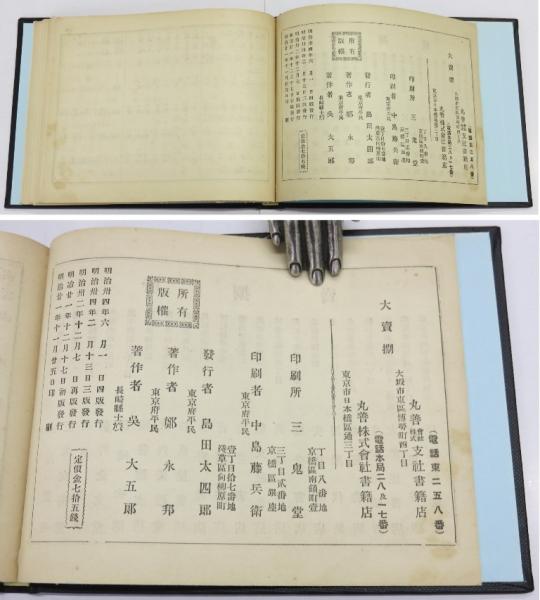 明治廿一年十一月廿五日印刷
明治廿一年十二月十七日初版發行
明治卅二年十二月七日再版發行
明治卅四年二月十三日三版發行
明治卅四年六月一日四版發行
定價金七拾五錢
版權
所有
長崎縣士族
著作者 吳大五郎
東京府平民
著作者 鄭永邦
東京府平民
發行者 島田太四郎
淺草區向柳原町
壹丁目拾七番地
東京府平民
印刷者 中島藤兵衛
京橋區銀座
三丁目貳番地
印刷所 三鬼堂
京橋區南鍋町壹
丁目八番地
大賣捌
東京市日本橋區通三丁目
丸善株式會社書籍店
(電話本局二八及一七番)
大坂市東區博勞町四丁目
丸善株式會社支社書籍店
(電話東二五八番)